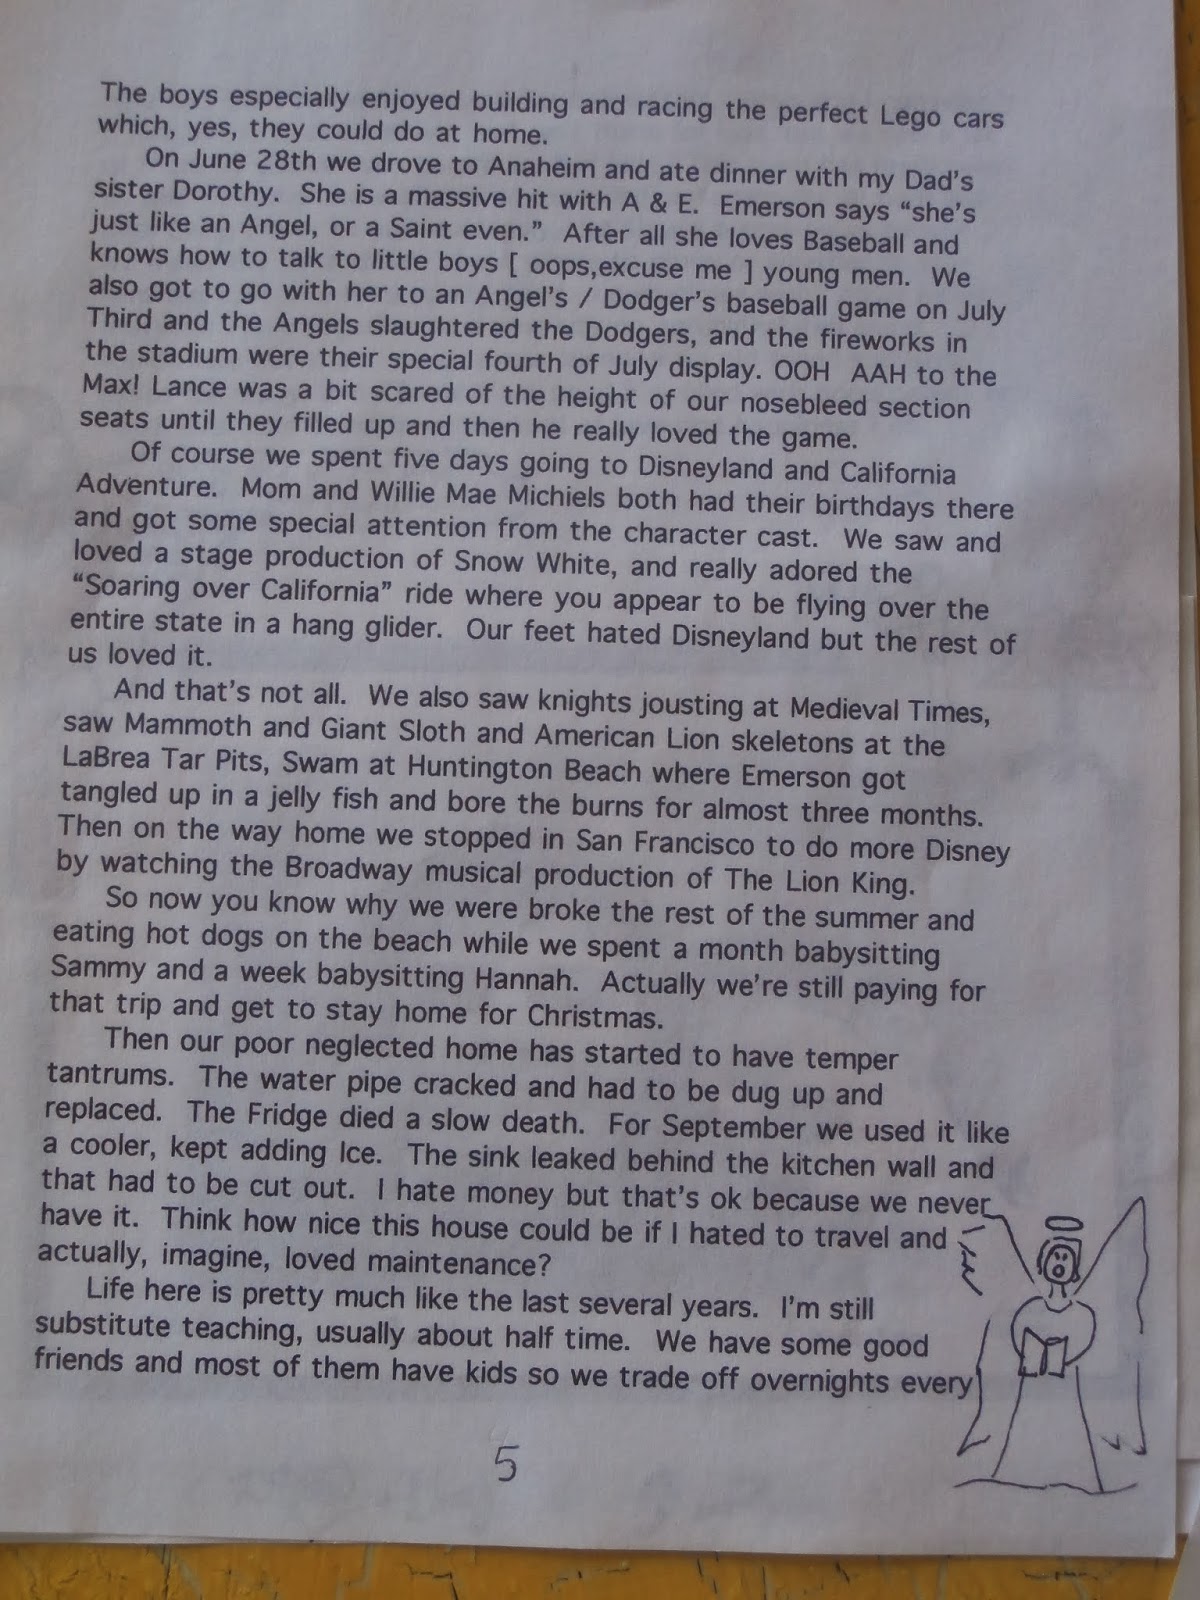 The boys especially enjoyed building and racing the perfect Lego cars
which, yes, they could do at home.
On June 28th we drove to Anaheim and ate dinner with my Dad's
sister Dorothy.  She is a massive hit with A & E.  Emerson says “she's
just like an Angel, or a Saint even.”  After all she loves Baseball and
knows how to talk to little boys [ oops,excuse me ] young men.  We
also got to go with her to an Angel's / Dodger's baseball game on July
Third and the Angels slaughtered the Dodgers, and the fireworks in
the stadium were their special fourth of July display. OOH  AAH to the
Max! Lance was a bit scared of the height of our nosebleed section
seats until they filled up and then he really loved the game.
Of course we spent five days going to Disneyland and California
Adventure.  Mom and Willie Mae Michiels both had their birthdays there
and got some special attention from the character cast.  We saw and
loved a stage production of Snow White, and really adored the
“Soaring over California” ride where you appear to be flying over the
entire state in a hang glider.  Our feet hated Disneyland but the rest of
us loved it.
And that's not all.  We also saw knights jousting at Medieval Times,
saw Mammoth and Giant Sloth and American Lion skeletons at the
LaBrea Tar Pits, Swam at Huntington Beach where Emerson got
tangled up in a jelly fish and bore the burns for almost three months.
Then on the way home we stopped in San Francisco to do more Disney
by watching the Broadway musical production of The Lion King.
So now you know why we were broke the rest of the summer and
eating hot dogs on the beach while we spent a month babysitting
Sammy and a week babysitting Hannah.  Actually we're still paying for
that trip and get to stay home for Christmas.
Then our poor neglected home has started to have temper
tantrums.  The water pipe cracked and had to be dug up and
replaced.  The Fridge died a slow death.  For September we used it like
a cooler, kept adding Ice.  The sink leaked behind the kitchen wall and
that had to be cut out.  I hate money but that's ok because we never
have it.  Think how nice this house could be if I hated to travel and
actually, imagine, loved maintenance?
Life here is pretty much like the last several years.  I'm still
substitute teaching, usually about half time.  We have some good
friends and most of them have kids so we trade off overnights every
5